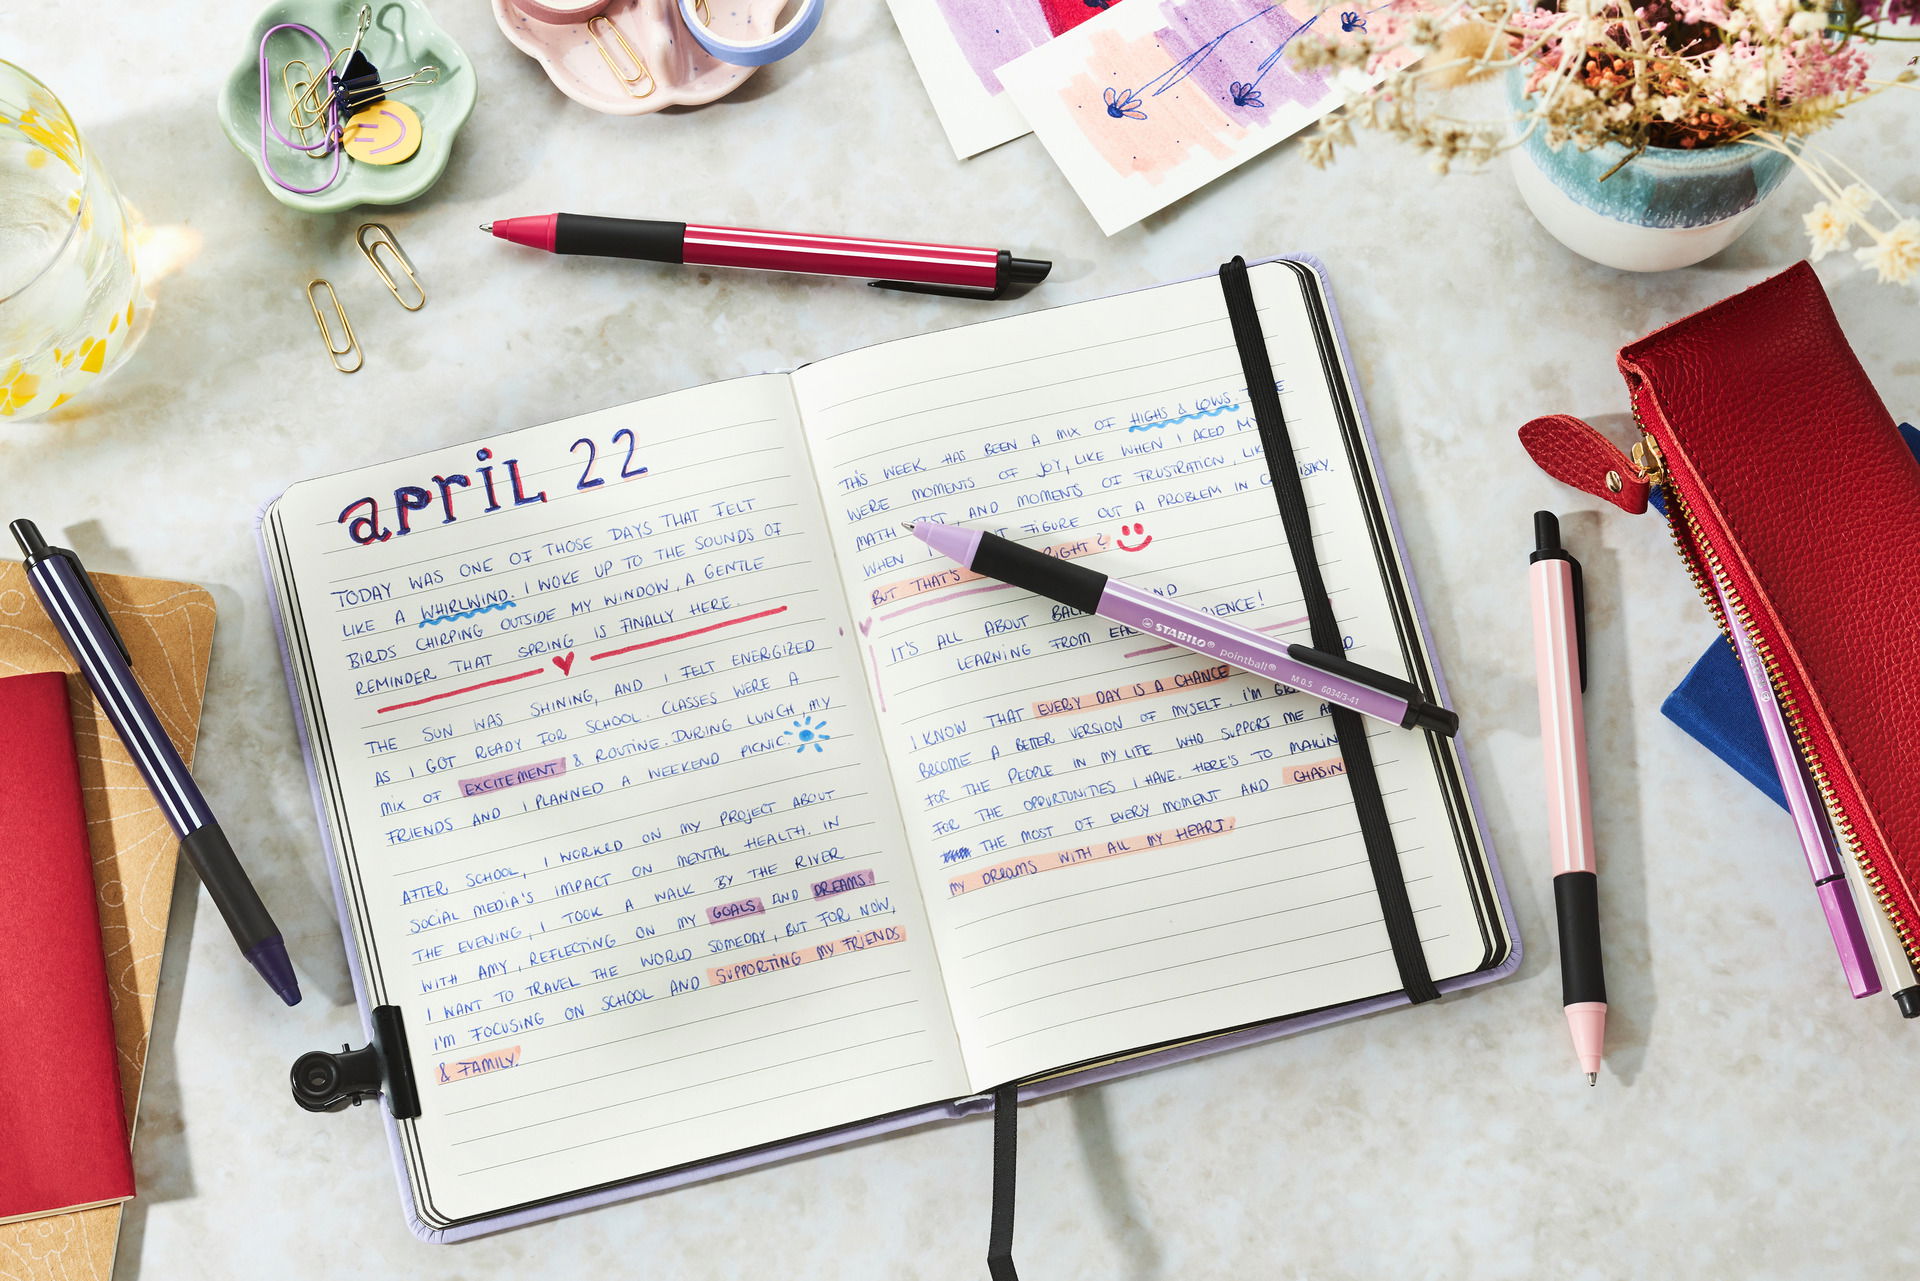 april 22
TODAY WAS ONE OF THOSE DAYS THAT FELT
LIKE A WHIRLWIND. I WOKE UP TO THE SOUNDS OF
BIRDS CHIRPING OUTSIDE MY WINDOW, A GENTLE
REMINDER THAT SPRING IS FINALLY HERE.
THE SUN WAS SHINING, AND I FELT ENERGIZED
AS I GOT READY FOR SCHOOL. CLASSES WERE A
MIX OF EXCITEMENT & ROUTINE. DURING LUNCH, MY
FRIENDS AND I PLANNED A WEEKEND PICNIC.
AFTER SCHOOL, I WORKED ON MY PROJECT ABOUT
SOCIAL MEDIA'S IMPACT ON MENTAL HEALTH. IN
THE EVENING, I TOOK A WALK BY THE RIVER
WITH AMY, REFLECTING ON MY GOALS AND DREAMS.
I WANT TO TRAVEL THE WORLD SOMEDAY, BUT FOR NOW,
I'M FOCUSING ON SCHOOL AND SUPPORTING MY FRIENDS
& FAMILY.
THIS WEEK HAS BEEN A MIX OF HIGHS & LOWS.
WERE MOMENTS OF JOY, LIKE WHEN I ACED MY
MATH TEST, AND MOMENTS OF FRUSTRATION, LIKE
WHEN I FIGURE OUT A PROBLEM IN
BUT THAT'S RIGHT?
IT'S ALL ABOUT AND
LEARNING FROM
I KNOW THAT EVERY DAY IS A CHANCE
BECOME A BETTER VERSION OF MYSELF. I'M
FOR THE PEOPLE IN MY LIFE WHO SUPPORT ME
FOR THE OPPURTUNITIES I HAVE. HERE'S TO MAKING
THE MOST OF EVERY MOMENT AND
MY DREAMS WITH ALL MY HEART.
STABILO® pointball® M 0.5 6034/3-41